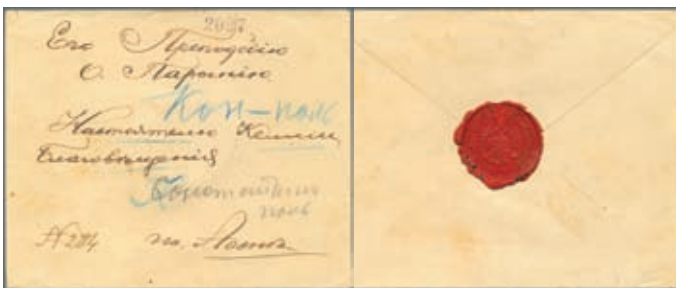 2037
Его Преподобію
О. Парѳенію
Кон-пол
Настоятелю Келліи
Благовѣщенія
Константино
поль
№ 284 на Аѳонѣ